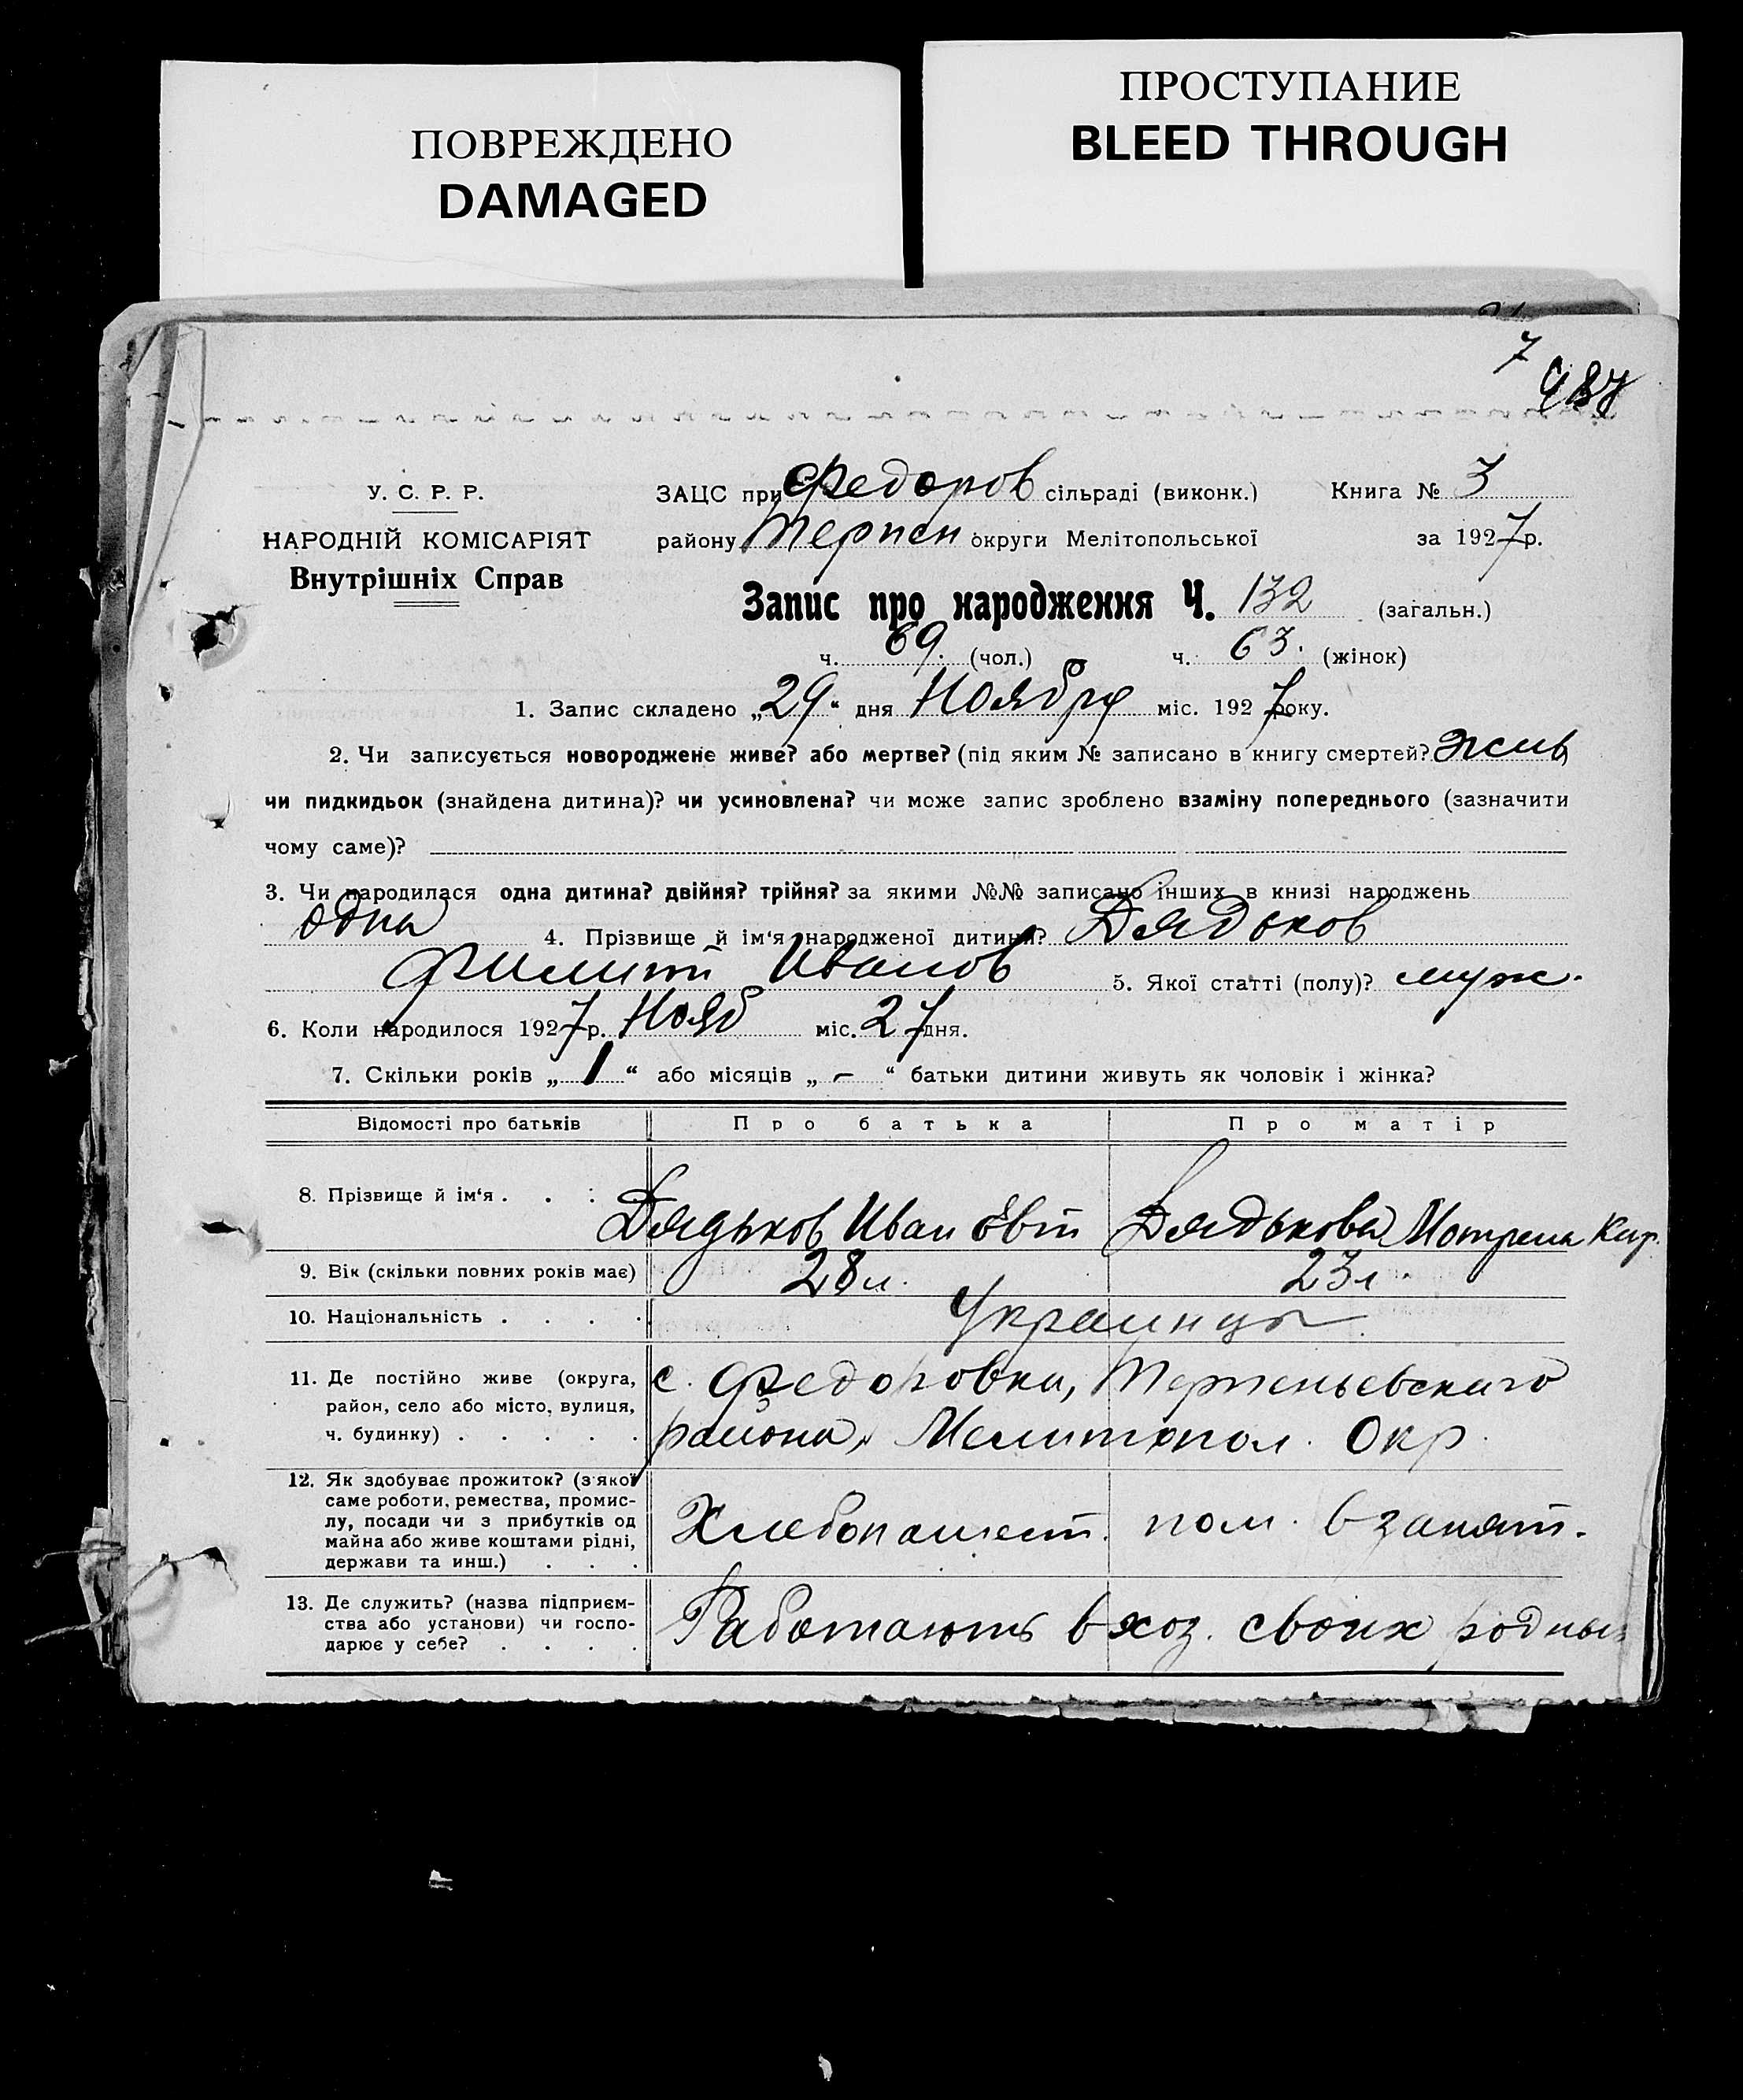 ПОВРЕЖДЕНО
DAMAGED
ПРОСТУПАНИЕ
BLEED THROUGH
7
У. С. Р. Р.
НАРОДНІЙ КОМІСАРІЯТ
Внутрішніх Справ
ЗАЦС при Федоров сільраді (виконк.) Книга № 3
району Терпен округи Мелітопольської за 1927 р.
Запис про народження Ч. 132 (загальн.)
ч. 69. (чол.) ч. 63. (жінок)
1. Запис складено „29“ дня Ноября міс. 1927 року.
2. Чи записується новороджене живе? або мертве? (під яким № записано в книгу смертей?
чи пидкидьок (знайдена дитина)? чи усиновлена? чи може запис зроблено взаміну попереднього (зазначити
чому саме)?
3. Чи народилася одна дитина? двійня? трійня? за якими №№ записано інших в книзі народжень
одна 4. Прізвище й ім‘я народженої дитини? Дядьков
Филипп Иванов 5. Якої статті (полу)? муж.
6. Коли народилося 1927 р. Нояб міс. 27 дня.
7. Скільки років „1“ або місяців „-“ батьки дитини живуть як чоловік і жінка?
Відомості про батьків Про батька Про матір
8. Прізвище й ім‘я . . . Дядьков Иван Евт Дядькова Мотрена Кир.
9. Вік (скільки повних років має) 28 л. 23 л.
10. Національність . . . . Украинцы
11. Де постійно живе (округа,
район, село або місто, вулиця,
ч. будинку) . . . . .
с. Федоровка, Терпеньевскаго
района, Мелитопол. Окр.
12. Як здобуває прожиток? (з якої
саме роботи, ремества, промис-
лу, посади чи з прибутків од
майна або живе коштами рідні,
держави та инш.) . . .
Хлебопашест. пом. в занят.
13. Де служить? (назва підприєм-
ства або установи) чи госпо-
дарює у себе? . . . .
Работають в хоз. своих родных